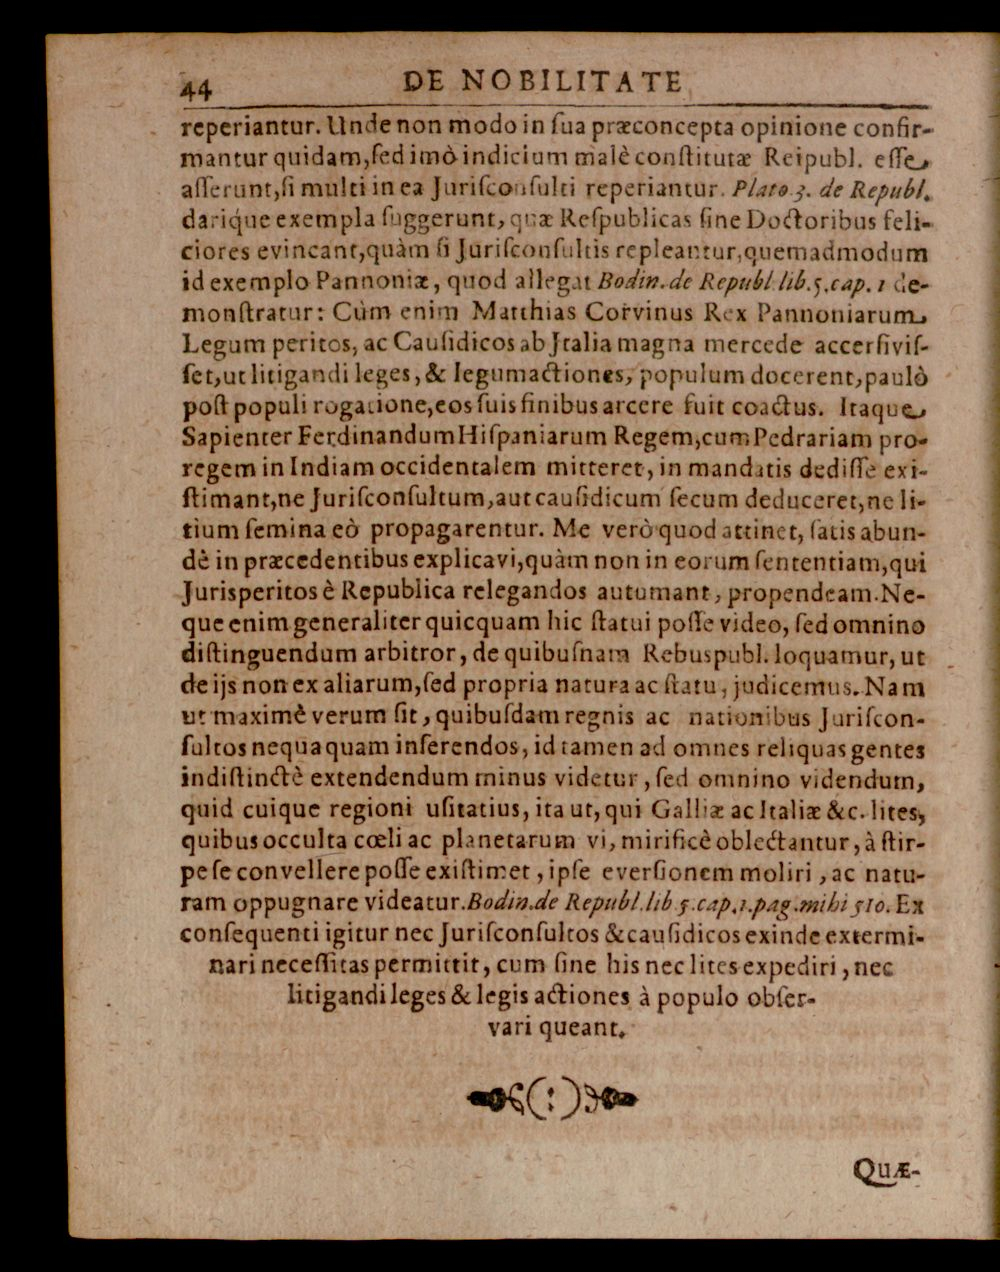 44 DE NOBILITATE
reperiantur. Unde non modo in ſua præconcepta opinione confir-
mantur quidam, ſed imò indicium malè conſtitutæ Reipubl. eſſe
aſſerunt, ſi multi in ea Juriſconſulti reperiantur. Plato 3. de Republ.
darique exempla ſuggerunt, quæ Reſpublicas ſine Doctoribus feli-
ciores evincant, quàm ſi Juriſconſultis repleantur, quemadmodum
id exemplo Pannoniæ, quod allegat Bodin. de Republ lib. 5. cap. 1 de-
monſtratur: Cùm enim Matthias Corvinus Rex Pannoniarum
Legum peritos, ac Cauſidicos ab Jtalia magna mercede accerſiviſ-
ſet, ut litigandi leges, & legumactiones, populum docerent, paulò
poſt populi rogatione, eos ſuis finibus arcere fuit coactus. Itaque
Sapienter Ferdinandum Hiſpaniarum Regem, cum Pedrariam pro-
regem in Indiam occidentalem mitteret, in mandatis dediſſe exi-
ſtimant, ne Juriſconſultum, aut cauſidicum ſecum deduceret, ne li-
tium ſemina eò propagarentur. Me verò quod attinet, ſatis abun-
dè in præcedentibus explicavi, quàm non in eorum ſententiam, qui
Jurisperitos è Republica relegandos autumant, propendeam. Ne-
que enim generaliter quicquam hic ſtatui poſſe video, ſed omnino
diſtinguendum arbitror, de quibuſnam Rebuspubl. loquamur, ut
de ijs non ex aliarum, ſed propria natura ac ſtatu, judicemus. Nam
ut maximè verum ſit, quibuſdam regnis ac nationibus Juriſcon-
ſultos nequaquam inferendos, id tamen ad omnes reliquas gentes
indiſtinctè extendendum minus videtur, ſed omnino videndum,
quid cuique regioni uſitatius, ita ut, qui Galliæ ac Italiæ &c. lites,
quibus occulta cœli ac planetarum vi, mirificè oblectantur, à ſtir-
pe ſe convellere poſſe exiſtimet, ipſe everſionem moliri, ac natu-
ram oppugnare videatur. Bodin. de Republ. lib 5. cap. 1. pag. mihi 510. Ex
conſequenti igitur nec Juriſconſultos & cauſidicos exinde extermi-
nari neceſſitas permittit, cum ſine his nec lites expediri, nec
litigandi leges & legis actiones à populo obſer-
vari queant.
Quæ-